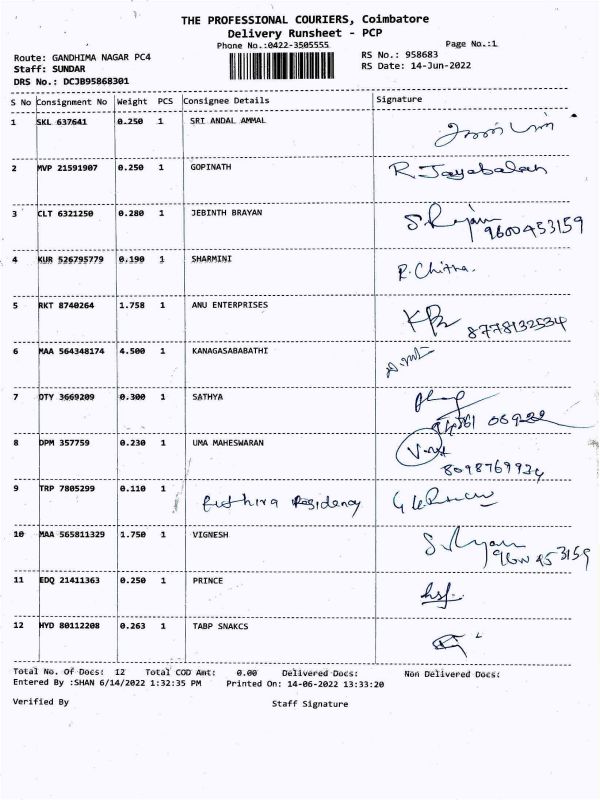 THE PROFESSIONAL COURIERS, Coimbatore
Delivery Runsheet - PCP
Phone No.:0422-3505555
Page No.:1
Route: GANDHIMA NAGAR PC4
RS No.: 958683
Staff: SUNDAR
RS Date: 14-Jun-2022
DRS No.: DCJB95868301
S No Consignment No Weight PCS Consignee Details Signature
1 SKL 637641 0.250 1 SRI ANDAL AMMAL
2 MVP 21591907 0.250 1 GOPINATH R. Jayabalan
3 CLT 6321250 0.280 1 JEBINTH BRAYAN
9600453159
4 KUR 526795779 0.190 1 SHARMINI R. Chitra.
5 RKT 8740264 1.758 1 ANU ENTERPRISES
8778132534
6 MAA 564348174 4.500 1 KANAGASABABATHI
7 DTY 3669209 0.300 1 SATHYA
8 DPM 357759 0.230 1 UMA MAHESWARAN
8098769934
9 TRP 7805299 0.110 1 Residency
10 MAA 565811329 1.750 1 VIGNESH
11 EDQ 21411363 0.250 1 PRINCE
12 HYD 80112208 0.263 1 TABP SNAKCS
Total No. Of Docs: 12 Total COD Amt: 0.00 Delivered Docs: Non Delivered Docs:
Entered By :SHAN 6/14/2022 1:32:35 PM Printed On: 14-06-2022 13:33:20
Verified By Staff Signature